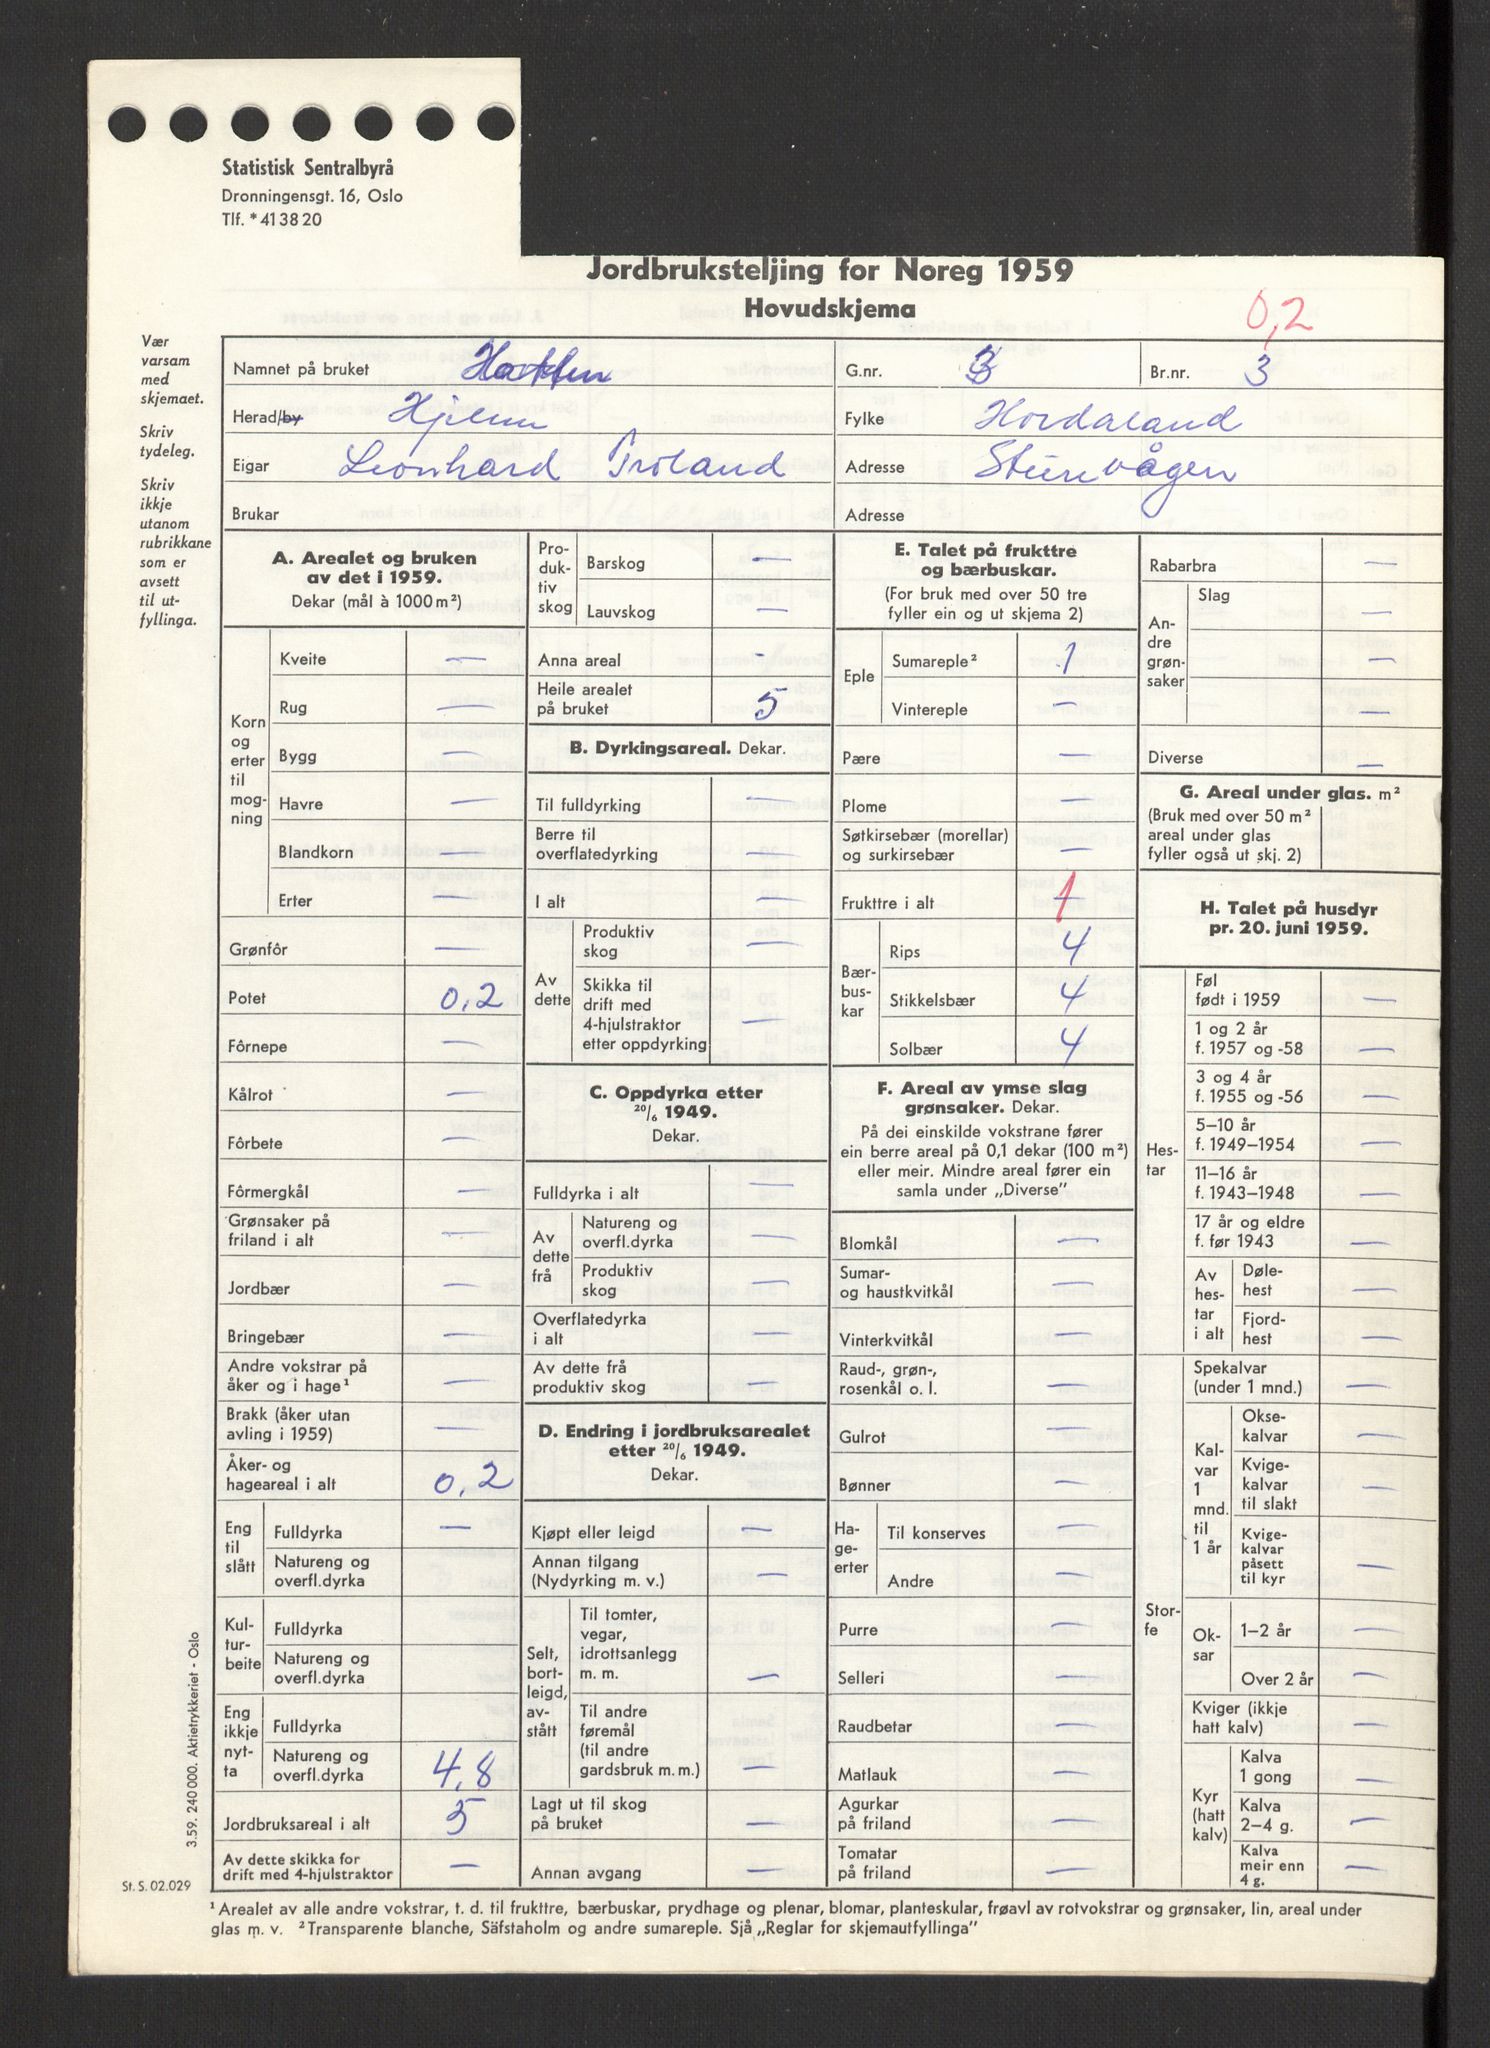 Statistisk Sentralbyrå
Dronningensgt. 16, Oslo
Tlf. *41 38 20
Jordbruksteljing for Noreg 1959
Hovudskjema
0,2
Vær
varsam
med
skjemaet.
Skriv
tydeleg.
Skriv
ikkje
utanom
rubrikkane
som er
avsett
til ut-
fyllinga.
Namnet på bruket
G.nr. 3 Br.nr. 3
Herad/by Hjelm Fylke Hordaland
Eigar Leonhard Troland Adresse Steinvågen
Brukar Adresse
A. Arealet og bruken
av det i 1959.
Dekar (mål à 1000 m²)
Korn
og
erter
til
mog-
ning
Kveite —
Rug —
Bygg —
Havre —
Blandkorn —
Erter —
Grønfôr —
Potet 0,2
Fôrnepe —
Kålrot —
Fôrbete —
Fôrmergkål —
Grønsaker på
friland i alt —
Jordbær —
Bringebær —
Andre vokstrar på
åker og i hage¹ —
Brakk (åker utan
avling i 1959) —
Åker- og
hageareal i alt 0,2
Eng
til
slått
Fulldyrka —
Natureng og
overfl.dyrka
Kul-
tur-
beite
Fulldyrka
Natureng og
overfl.dyrka
Eng
ikkje
nyt-
ta
Fulldyrka
Natureng og
overfl.dyrka 4,8
Jordbruksareal i alt 5
Av dette skikka for
drift med 4-hjulstraktor —
Pro-
duk-
tiv
skog
Barskog —
Lauvskog —
Anna areal -
Heile arealet
på bruket 5
B. Dyrkingsareal. Dekar.
Til fulldyrking —
Berre til
overflatedyrking —
I alt —
Av
dette
Produktiv
skog —
Skikka til
drift med
4-hjulstraktor
etter oppdyrking —
C. Oppdyrka etter
20/6 1949.
Dekar.
Fulldyrka i alt —
Av
dette
frå
Natureng og
overfl.dyrka —
Produktiv
skog —
Overflatedyrka
i alt —
Av dette frå
produktiv skog —
D. Endring i jordbruksarealet
etter 20/6 1949.
Dekar.
Kjøpt eller leigd —
Annan tilgang
(Nydyrking m. v.) —
Selt,
bort-
leigd,
av-
stått
Til tomter,
vegar,
idrottsanlegg
m. m. —
Til andre
føremål
(til andre
gardsbruk m. m.) —
Lagt ut til skog
på bruket —
Annan avgang —
E. Talet på frukttre
og bærbuskar.
(For bruk med over 50 tre
fyller ein og ut skjema 2)
Eple
Sumareple² 1
Vintereple —
Pære —
Plome —
Søtkirsebær (morellar)
og surkirsebær —
Frukttre i alt 1
Bær-
bus-
kar
Rips 4
Stikkelsbær 4
Solbær 4
F. Areal av ymse slag
grønsaker. Dekar.
På dei einskilde vokstrane fører
ein berre areal på 0,1 dekar (100 m²)
eller meir. Mindre areal fører ein
samla under „Diverse”
Blomkål —
Sumar-
og haustkvitkål —
Vinterkvitkål —
Raud-, grøn-,
rosenkål o. l. —
Gulrot —
Bønner —
Ha-
ge-
erter
Til konserves —
Andre —
Purre —
Selleri —
Raudbetar —
Matlauk —
Agurkar
på friland —
Tomatar
på friland —
Rabarbra —
An-
dre
grøn-
saker
Slag
—
—
—
Diverse —
G. Areal under glas. m²
(Bruk med over 50 m²
areal under glas
fyller også ut skj. 2)
H. Talet på husdyr
pr. 20. juni 1959.
Hes-
tar
Føl
født i 1959 —
1 og 2 år
f. 1957 og -58 —
3 og 4 år
f. 1955 og -56 —
5–10 år
f. 1949–1954 —
11–16 år
f. 1943–1948 —
17 år og eldre
f. før 1943 —
Av
hes-
tar
i alt
Døle-
hest —
Fjord-
hest —
Stor-
fe
Spekalvar
(under 1 mnd.) —
Kal-
var
1
mnd.
til
1 år
Okse-
kalvar —
Kvige-
kalvar
til slakt —
Kvige-
kalvar
påsett
til kyr —
Ok-
sar
1–2 år —
Over 2 år —
Kviger (ikkje
hatt kalv) —
Kyr
(hatt
kalv)
Kalva
1 gong —
Kalva
2–4 g. —
Kalva
meir enn
4 g. —
3.59. 240 000. Aktietrykkeriet - Oslo
St. S. 02.029
¹ Arealet av alle andre vokstrar, t. d. til frukttre, bærbuskar, prydhage og plenar, blomar, planteskular, frøavl av rotvokstrar og grønsaker, lin, areal under
glas m. v. ² Transparente blanche, Säfstaholm og andre sumareple. Sjå „Reglar for skjemautfyllinga”